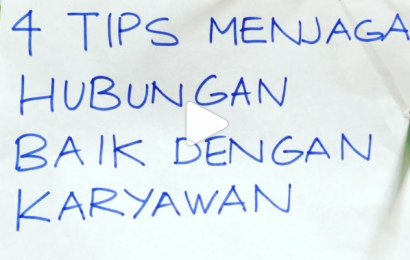 4 TIPS MENJAGA
HUBUNGAN
BAIK DENGAN
KARYAWAN